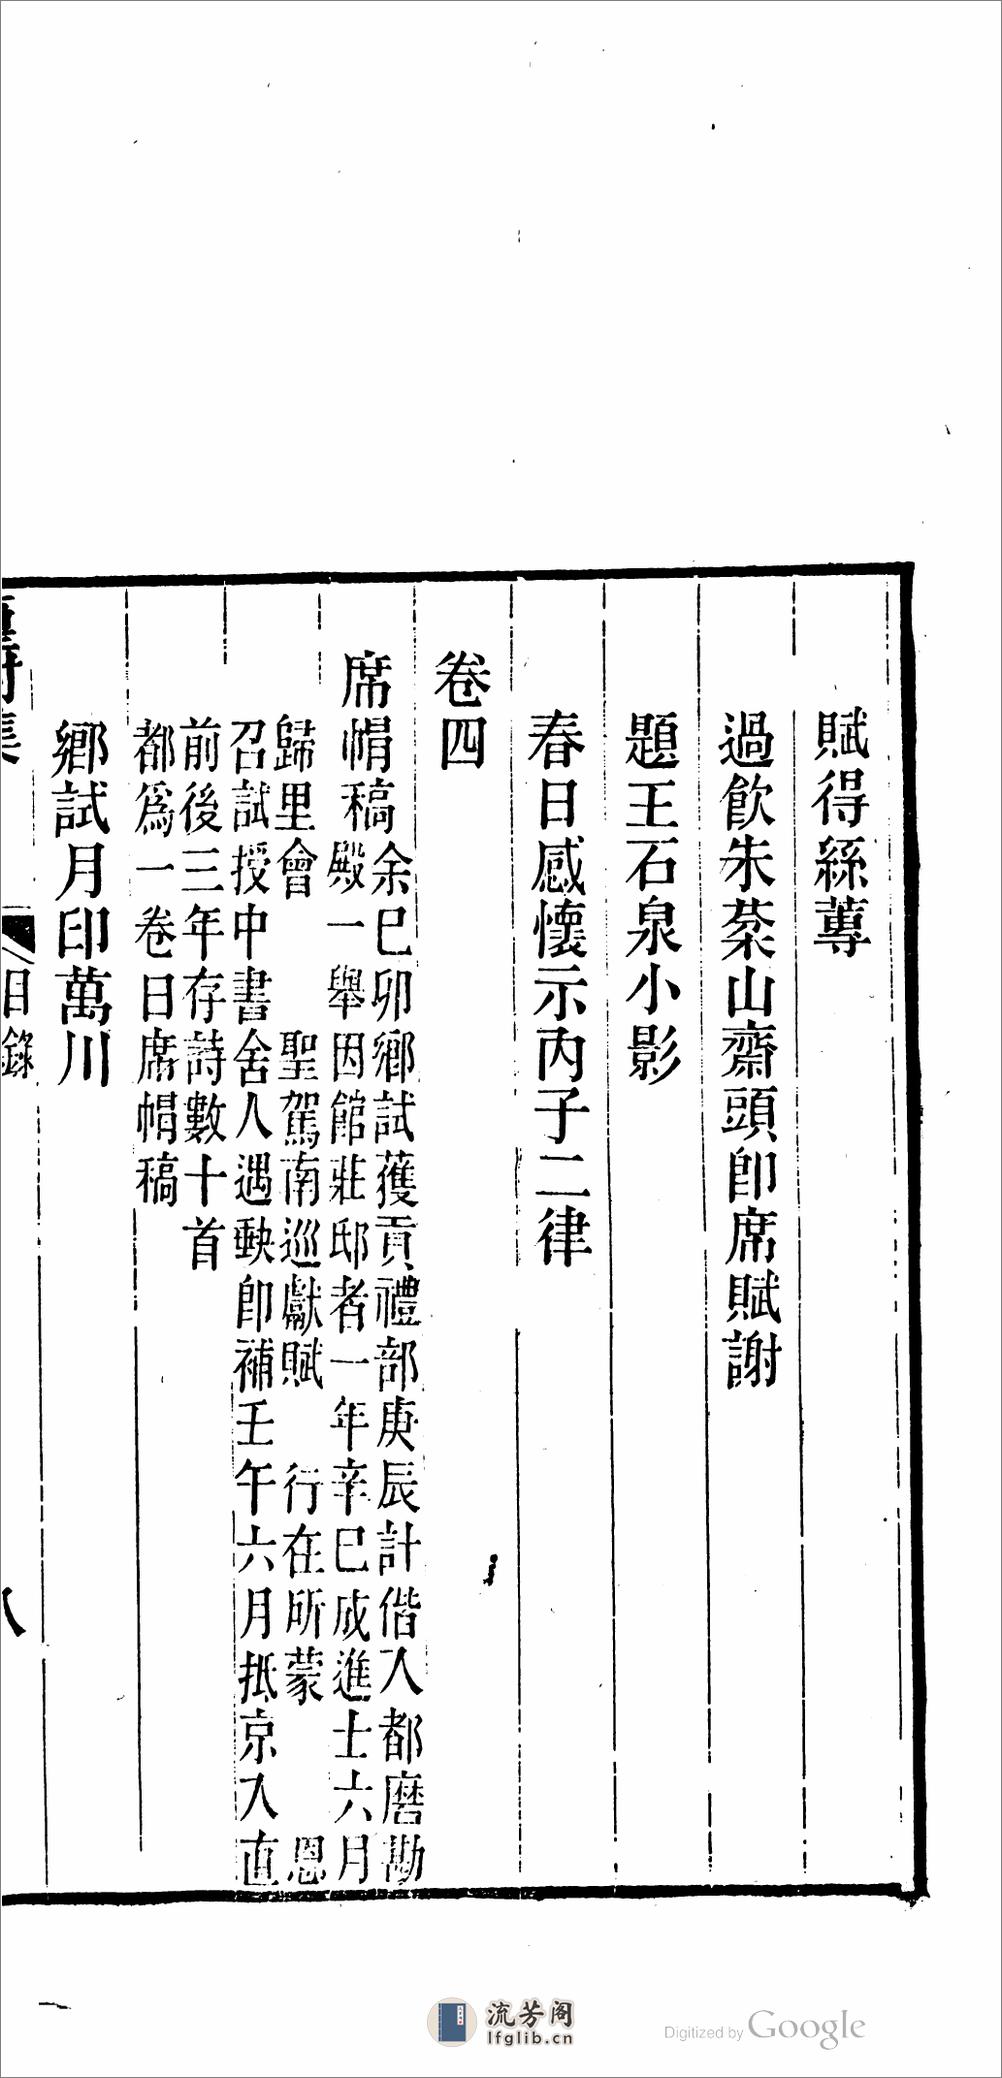 賦得絲蓴
過飲朱棻山齋頭卽席賦謝
題王石泉小影
春日感懷示丙子二律
卷四
席帽稿
余巳卯鄉試獲貢禮部庚辰計偕入都磨勘
殿一舉因館莊邸者一年辛巳成進士六月
歸里會 聖駕南巡獻賦 行在所蒙 恩
召試授中書舍人遇缺卽補壬午六月抵京入直
前後三年存詩數十首
都爲一卷曰席帽稿
鄉試月印萬川
集
目錄
八
流芳阁
lfglib.cn
Digitized by Google